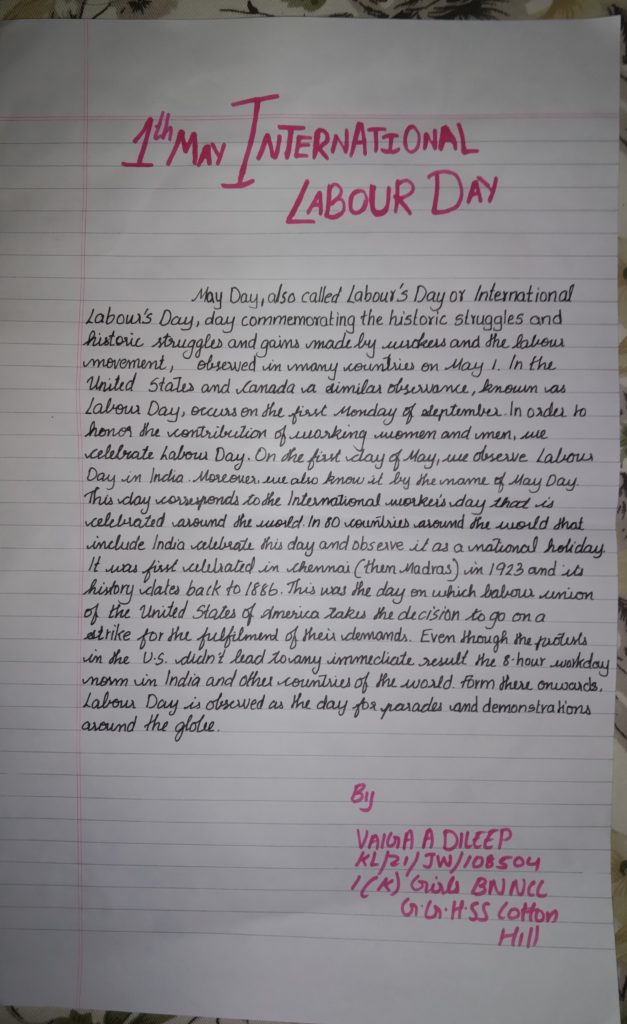 1th MAY INTERNATIONAL
LABOUR DAY
May Day, also called Labour's Day or International
Labour's Day, day commemorating the historic struggles and
historic struggles and gains made by wrokers and the labour
movement, observed in many countries on May 1. In the
United States and Canada a similar observance, known as
Labour Day, occurs on the first Monday of september. In order to
honor the contribution of working women and men, we
celebrate Labour Day. On the first day of May, we observe Labour
Day in India. Moreover we also know it by the name of May Day.
This day corresponds to the International worker's day that is
celebrated around the world. In 80 countries around the world that
include India celebrate this day and observe it as a national holiday.
It was first celebrated in chennai (then Madras) in 1923 and its
history dates back to 1886. This was the day on which labour union
of the United States of America takes the decision to go on a
strike for the fulfilment of their demands. Even though the protests
in the U.S. didn't lead to any immediate result the 8-hour workday
norm in India and other countries of the world. form there onwards,
Labour Day is observed as the day for parades and demonstrations
around the globe.
By
VAIGA A DILEEP
KL/21/JW/108504
1(K) Girls BN NCC
G.G.H.SS Cotton
Hill